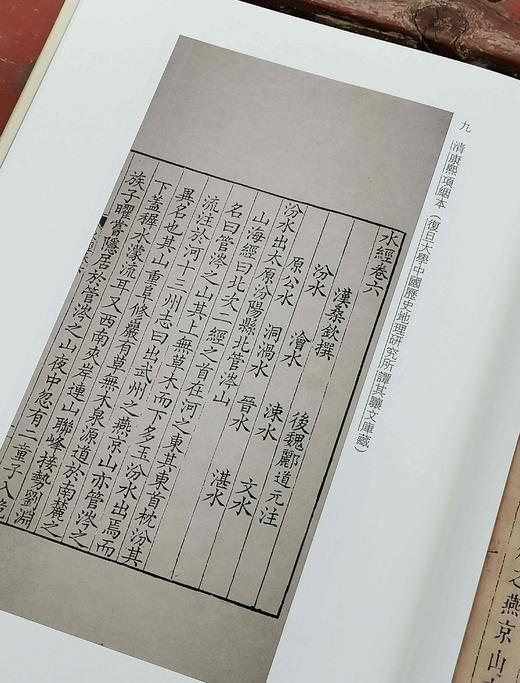 九 清康熙項絪本(復旦大學中國歷史地理研究所譚其驤文庫藏)
水經卷六
漢桑欽撰 後魏酈道元注
汾水 澮水 涑水 文水
原公水 洞渦水 晉水 湛水
汾水出太原汾陽縣北管涔山
山海經曰北次二經之首在河之東其東首枕汾其
名曰管涔之山其上無草木而下多玉汾水出焉而
流注於河十三州志曰出武州之燕京山亦管涔之
異名也其山重阜修巖有草無木泉源導於南麓之
下蓋稚水濛流耳又西南夾岸連山聯峰接勢劉淵
族子曜嘗隱居於管涔之山夜中忽有二童子入跪
之燕京山